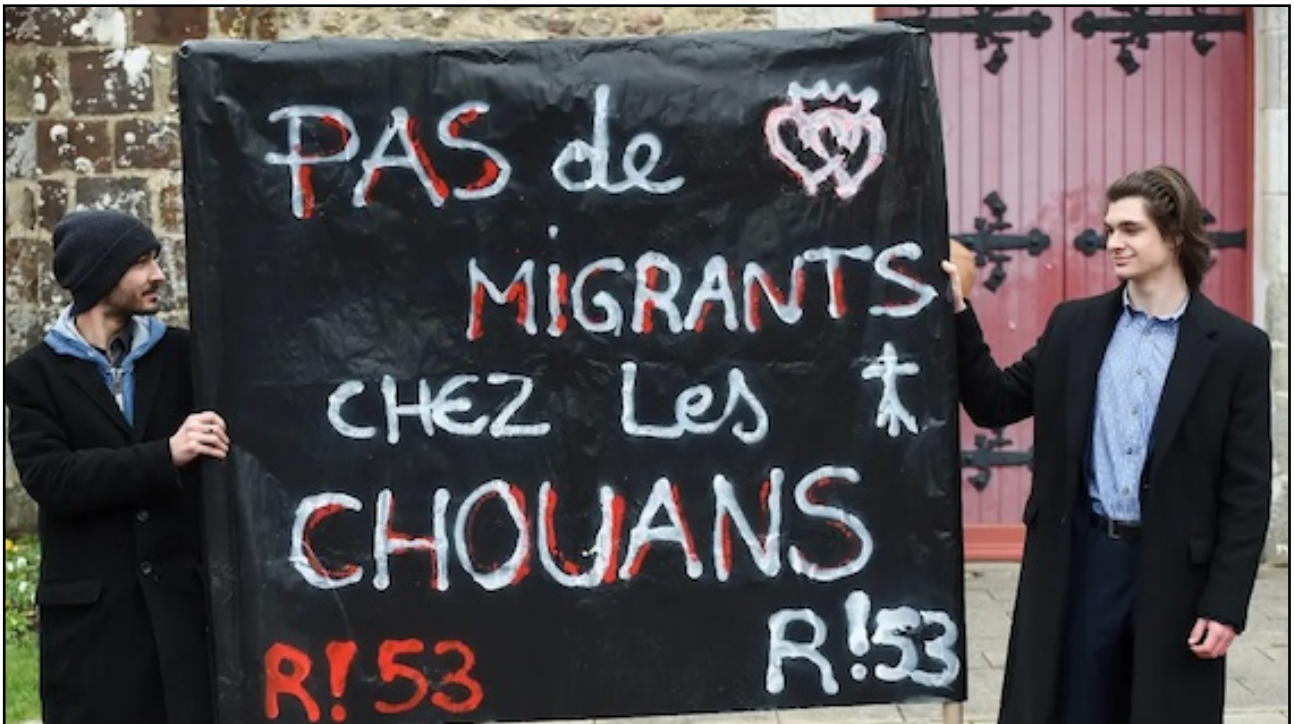 PAS de
MiGRANTS
CHEZ Les
CHOUANS
R!53
R!53